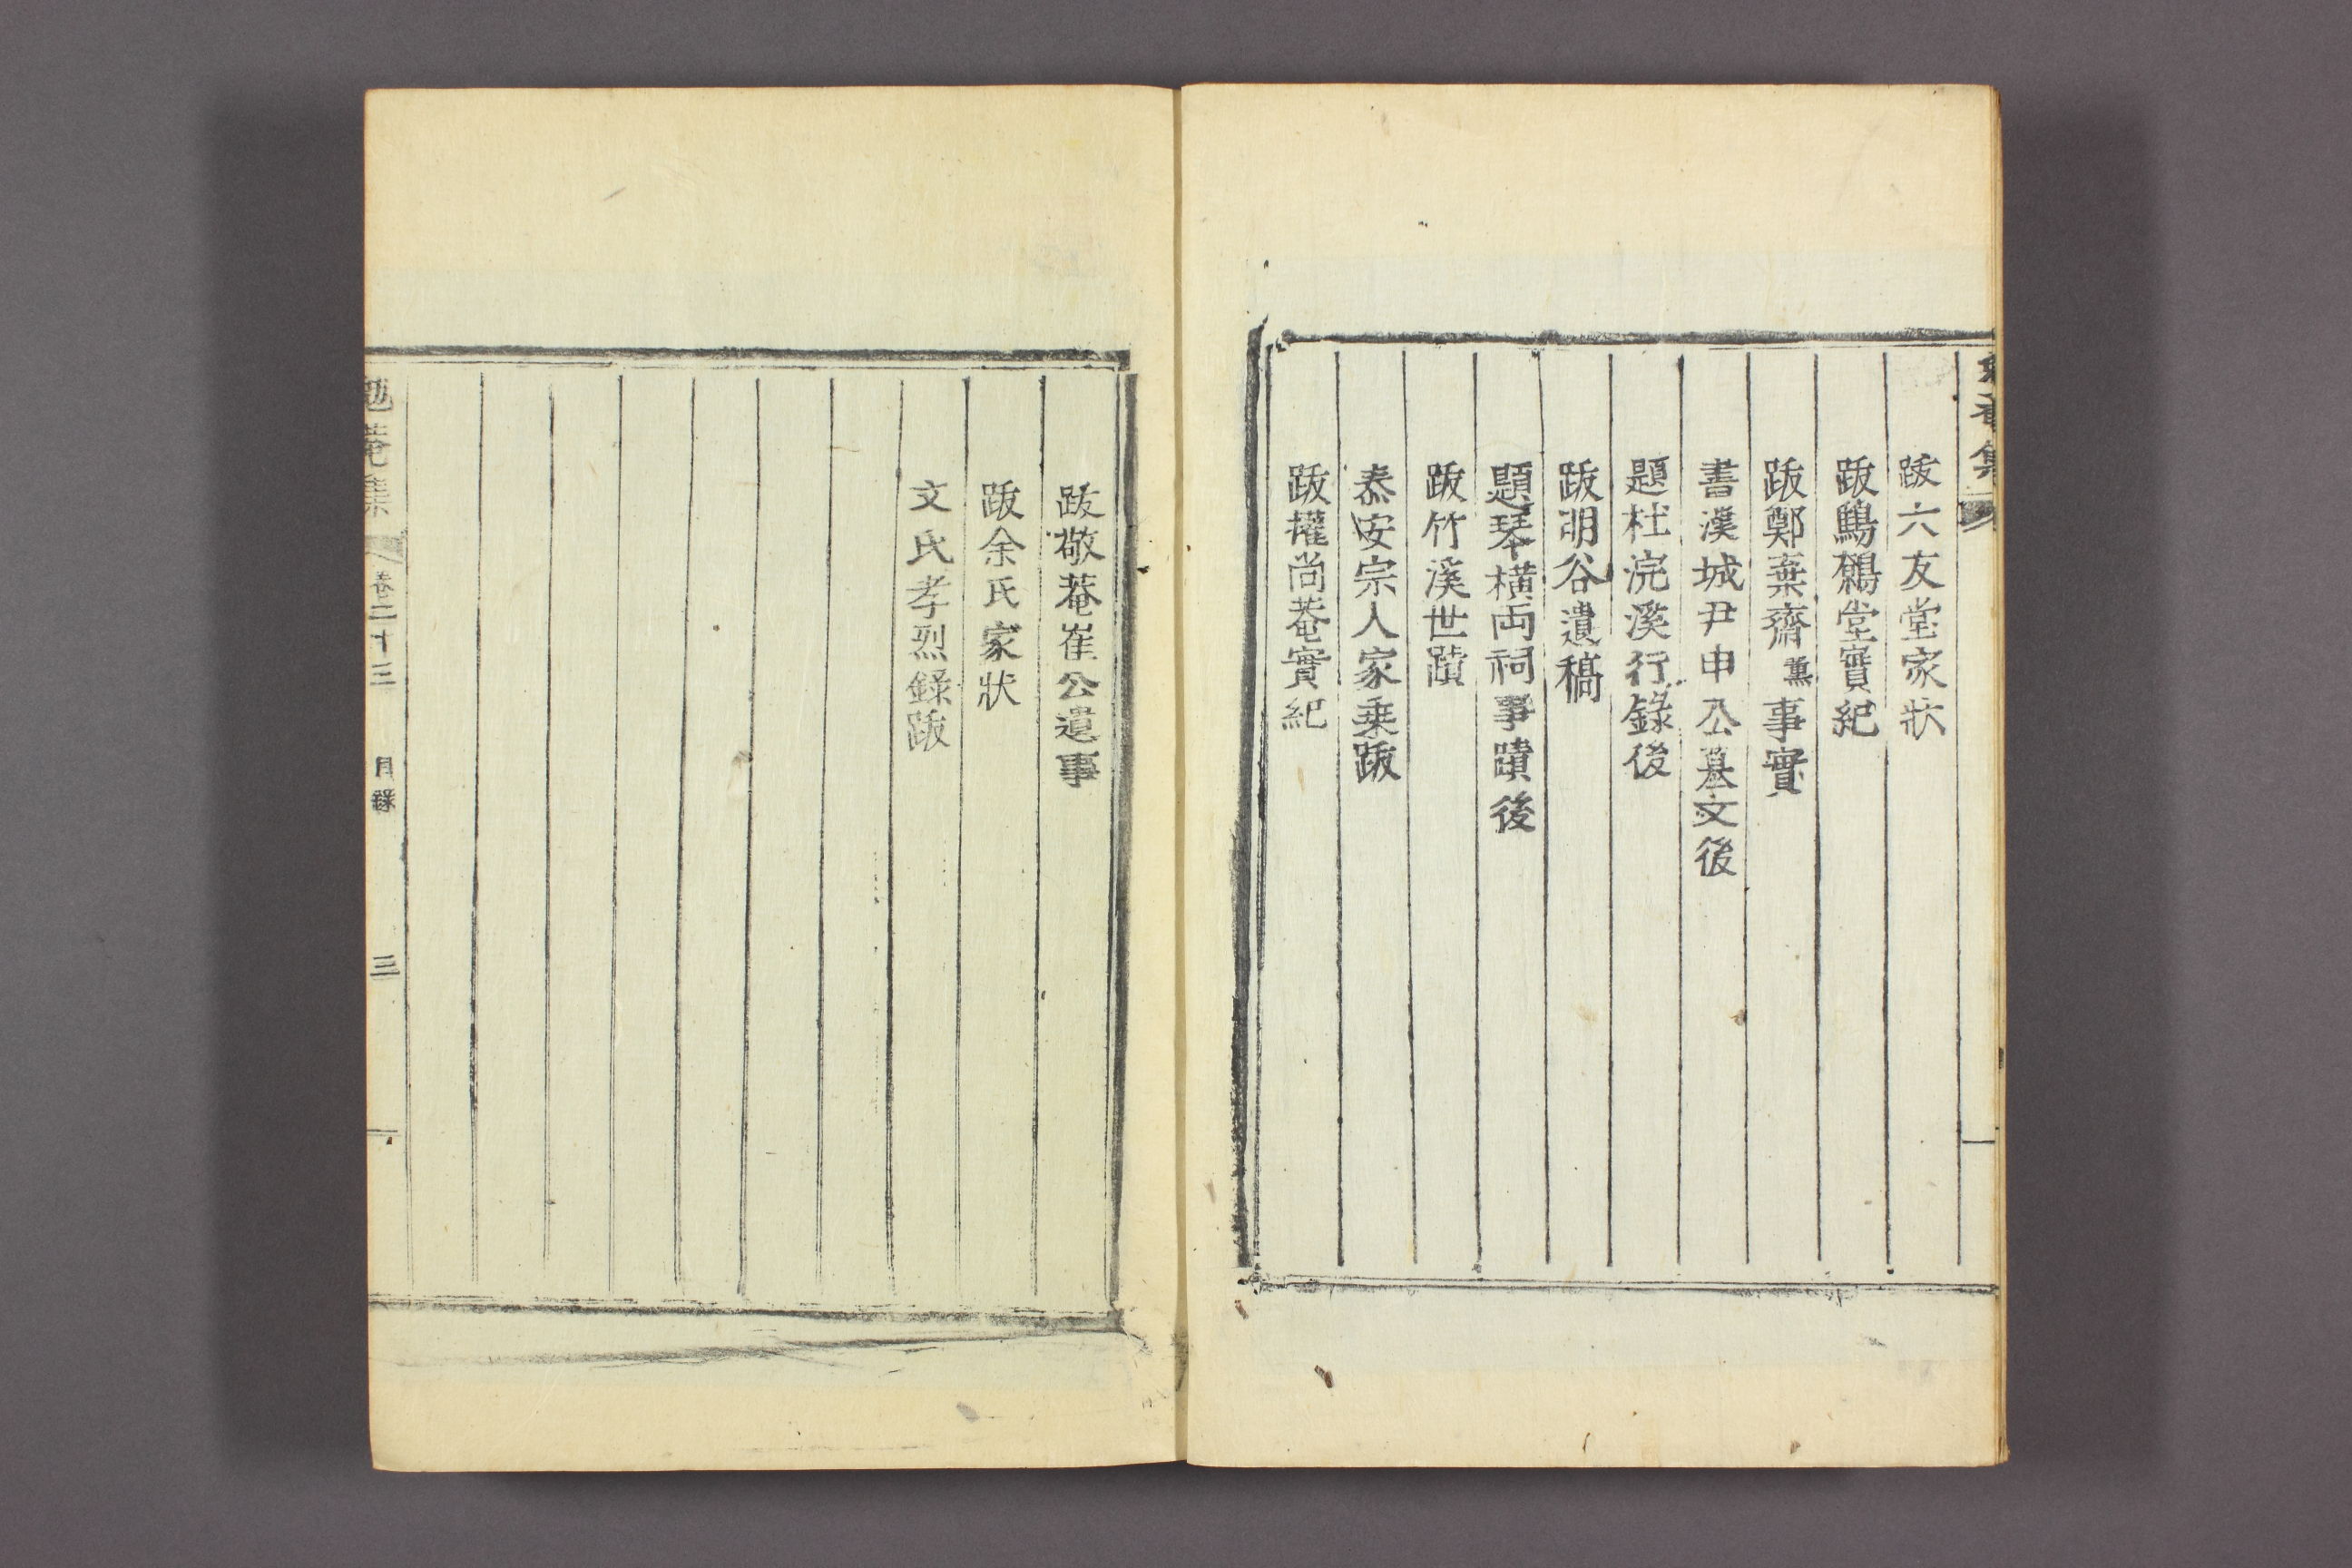 跋六友堂家狀
跋鷦鷯堂實紀
跋鄭棄齊薰事實
書漢城尹申公墓文後
題杜浣溪行錄後
跋明谷遺稿
題琴橫兩祠事蹟後
跋竹溪世蹟
泰安宗人家乘跋
跋權尚菴實紀
跋敬菴崔公遺事
跋余氏家狀
文氏孝烈錄跋
勉菴集 卷二十三 目錄 三